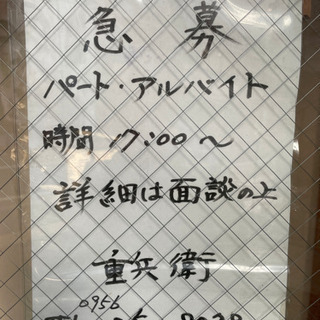 急募
パート・アルバイト
時間 17:00〜
詳細は面談の上
重兵衛
0956